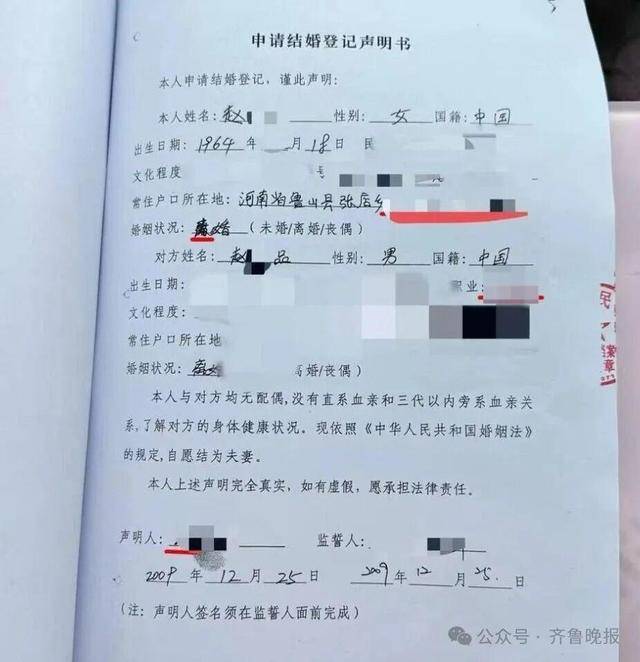 申请结婚登记声明书
本人申请结婚登记，谨此声明：
本人姓名：赵 性别：女 国籍：中国
出生日期：1964年 月18日 民
文化程度
常住户口所在地：河南省鲁山县张店乡
婚姻状况：离婚（未婚/离婚/丧偶）
对方姓名：赵 品 性别：男 国籍：中国
出生日期： 职业：
文化程度：
常住户口所在地
婚姻状况：离婚 离婚/丧偶）
本人与对方均无配偶,没有直系血亲和三代以内旁系血亲关
系,了解对方的身体健康状况。现依照《中华人民共和国婚姻法》
的规定,自愿结为夫妻。
本人上述声明完全真实，如有虚假，愿承担法律责任。
声明人： 监誓人：
2009年12月25日 2009年12月25日
（注：声明人签名须在监誓人面前完成）
民
档案
章
公众号·齐鲁晚报